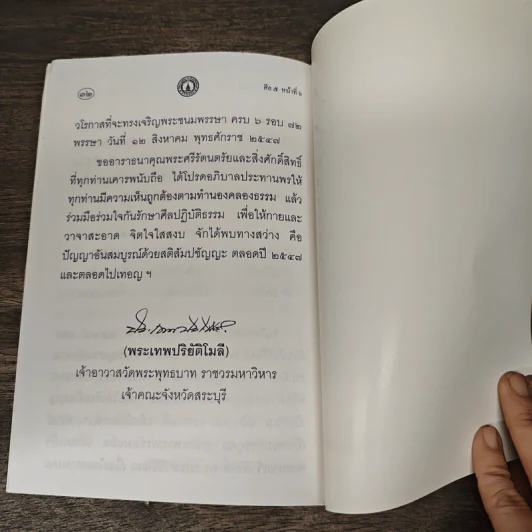 ๓๒
ศีล ๕ หน้าที่ ๖
วโรกาสที่จะทรงเจริญพระชนมพรรษา ครบ ๖ รอบ ๗๒
พรรษา วันที่ ๑๒ สิงหาคม พุทธศักราช ๒๕๔๗
ขออาราธนาคุณพระศรีรัตนตรัยและสิ่งศักดิ์สิทธิ์
ที่ทุกท่านเคารพนับถือ ได้โปรดอภิบาลประทานพรให้
ทุกท่านมีความเห็นถูกต้องตามทำนองคลองธรรม แล้ว
ร่วมมือร่วมใจกันรักษาศีลปฏิบัติธรรม เพื่อให้กายและ
วาจาสะอาด จิตใจใสสงบ จักได้พบทางสว่าง คือ
ปัญญาอันสมบูรณ์ด้วยสติสัมปชัญญะ ตลอดปี ๒๕๔๗
และตลอดไปเทอญ ฯ
(พระเทพปริยัติโมลี)
เจ้าอาวาสวัดพระพุทธบาท ราชวรมหาวิหาร
เจ้าคณะจังหวัดสระบุรี